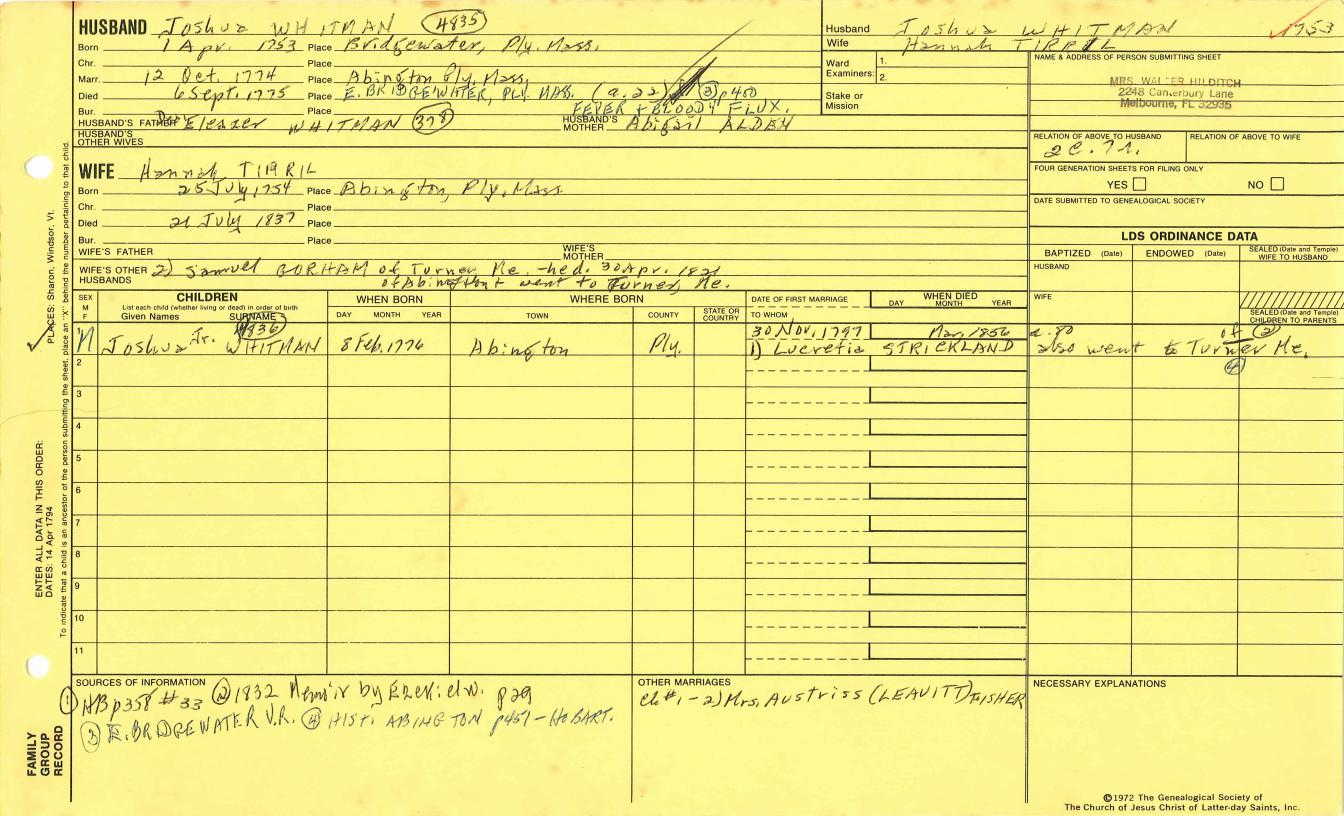 HUSBAND Joshua WHITMAN 4835
Born 1 Apr. 1753 Place Bridgewater, Ply. Mass.
Chr. Place
Marr. 12 Oct. 1774 Place Abington Ply. Mass.
Died 6 Sept. 1775 Place E. BRIDGEWATER, PLY. MASS. (a. 22) ③ p400
Bur. Place FEVER + BLOODY FLUX.
HUSBAND'S FATHER Eleazer WHITMAN 378 HUSBAND'S MOTHER Abigail ALDEN
HUSBAND'S OTHER WIVES
Husband Joshua WHITMAN 1753
Wife Hannah TIRRIL
Ward Examiners: 1.
2.
Stake or Mission
NAME & ADDRESS OF PERSON SUBMITTING SHEET
MRS. WALTER HILDITCH
2248 Canterbury Lane
Melbourne, FL 32935
RELATION OF ABOVE TO HUSBAND RELATION OF ABOVE TO WIFE
2c. 7r.
FOUR GENERATION SHEETS FOR FILING ONLY
YES NO
DATE SUBMITTED TO GENEALOGICAL SOCIETY
WIFE Hannah TIRRIL
Born 25 July, 1754 Place Abington, Ply, Mass
Chr. Place
Died 21 July 1837 Place
Bur. Place
WIFE'S FATHER WIFE'S MOTHER
WIFE'S OTHER HUSBANDS 2) Samuel GORHAM of Turner, Me. -he d. 30 Apr. 1821
of Abington & went to Turner, Me.
LDS ORDINANCE DATA
BAPTIZED (Date) ENDOWED (Date) SEALED (Date and Temple) WIFE TO HUSBAND
HUSBAND
WIFE
SEALED (Date and Temple) CHILDREN TO PARENTS
SEX M F CHILDREN WHEN BORN WHERE BORN DATE OF FIRST MARRIAGE WHEN DIED
List each child (whether living or dead) in order of birth
Given Names SURNAME DAY MONTH YEAR TOWN COUNTY STATE OR COUNTRY TO WHOM DAY MONTH YEAR
4836 30 Nov, 1797 Mar, 1856 a. 80 of ②
M Joshua Jr. WHITMAN 8 Feb. 1776 Abington Ply. 1) Lucretia STRICKLAND also went to Turner Me.
④
2
3
4
5
6
7
8
9
10
11
SOURCES OF INFORMATION
① p358 #33 ② 1832 Memoir by Ezekiel W. p29
③ E. BRIDGEWATER V.R. ④ HIST. ABINGTON p451-HOBART.
OTHER MARRIAGES
ch #1 - 2) Mrs. Austriss (LEAVITT) FISHER
NECESSARY EXPLANATIONS
©1972 The Genealogical Society of
The Church of Jesus Christ of Latter-day Saints, Inc.
PLACES: Sharon, Windsor, Vt.
To indicate that a child is an ancestor of the person submitting the sheet, place an "X" behind the number pertaining to that child.
ENTER ALL DATA IN THIS ORDER:
DATES: 14 Apr 1794
FAMILY
GROUP
RECORD